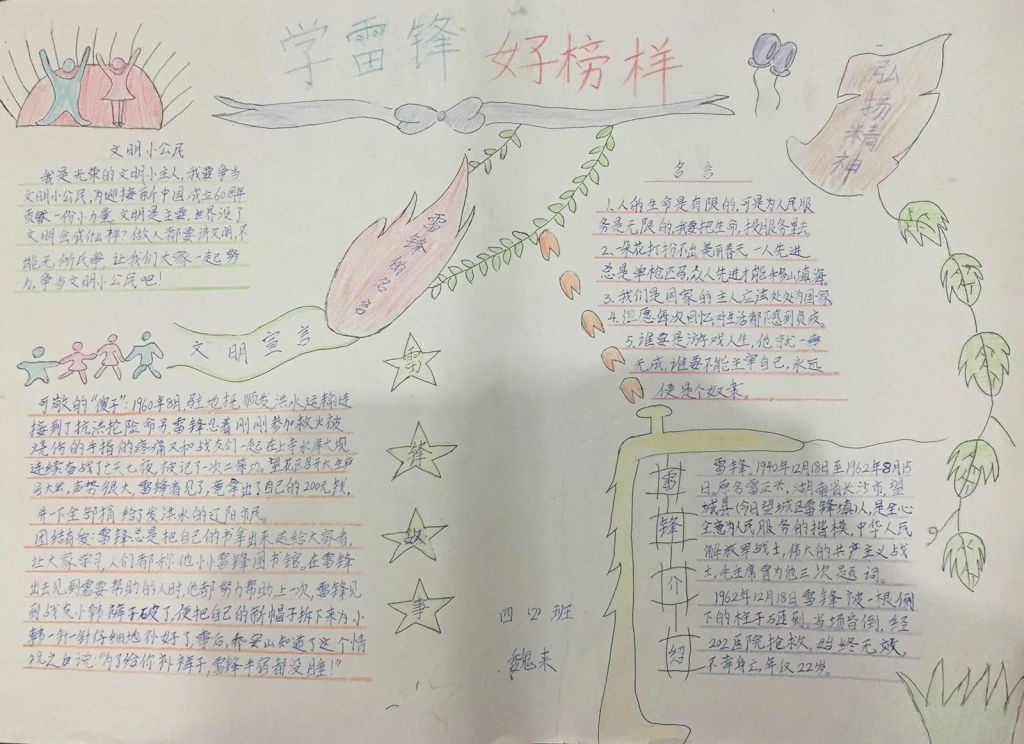 学雷锋 好榜样
弘扬精神
文明小公民
我是光荣的文明小主人,我要争当
文明小公民,为迎接新中国成立60周年
贡献一份小力量,文明是主要,世界没了
文明会成什样?做人都要讲文明,不
能无所民事,让我们大家一起努
力,争当文明小公民吧!
雷锋的名言
名言
1.人的生命是有限的,可是为人民服
务是无限的,我要把生命,投服务里去
2.一朵花打扮不出美丽春天,一人先进
总是单枪匹马,众人先进才能移山填海
3.我们是国家的主人应法处处为国家
4.但愿每次回忆,对生活都不感到负疚
5.谁要是游戏人生,他就一事
无成,谁要不能主宰自己,永远
便是个奴隶。
文明宣言
可敬的“傻子”:1960年8月,驻地抚顺发洪水运输连
接到了抗洪抢险命令雷锋忍着刚刚参加救火被
烧伤的手指的疼痛又和战友们一起在上寺水库大坝
连续奋战了七天七夜,被记了一次二等功。望花区召开大生产
号大会,声势很大,雷锋看见了,竟拿出了自己的200元钱,
并一下全部捐给了发洪水的辽阳市民。
团结有爱:雷锋总是把自己的书拿出来送给大家看,
让大家学习,人们都称他小小雷锋图书馆。在雷锋
出去见到需要帮助的人时,他都努力帮助,上一次,雷锋见
到战友小韩裤子破了,便把自己的新帽子拆下来为小
韩一针一针仔细地补好了,事后,乔安山知道了这个情
况之白说:“为了给你补裤子,雷锋半宿都没睡!”
雷锋故事
四(2)班
魏来
雷锋介绍
雷锋,1940年12月18日至1962年8月15
日。原名雷正兴,湖南省长沙市,望
城县(今日望城区雷锋镇)人,是全心
全意为人民服务的楷模,中华人民
解放军战士,伟大的共产主义战
士,毛主席曾为他三次题词。
1962年12月18日雷锋被一根倒
下的柱子砸到,当场昏倒,经
202医院抢救,始终无效,
不幸身亡,年仅22岁。